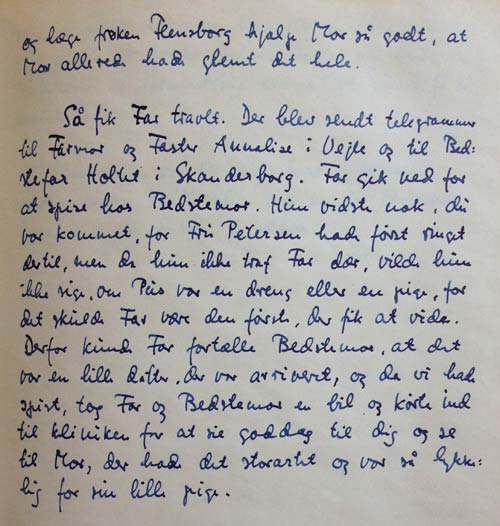 og læge frøken Flensborg hjalp Mor så godt, at
Mor allerede havde glemt det hele.
Så fik Far travlt. Der blev sendt telegrammer
til Farmor og Faster Annalise i Vejle og til Bed-
stefar Holtet i Skanderborg. Far gik ned for
at spise hos Bedstemor. Hun vidste nok, du
var kommet, for Fru Petersen havde først ringet
dertil, men da hun ikke traf Far der, vilde hun
ikke sige, om Peis var en dreng eller en pige, for
det skulde Far være den første, der fik at vide.
Derfor kunde Far fortælle Bedstemor, at det
var en lille datter, der var arriveret, og da vi havde
spist, tog Far og Bedstemor en bil og kørte ind
til kliniken for at sie goddag til dig og se
til Mor, der havde det storartet og var så lykke-
lig for sin lille pige.